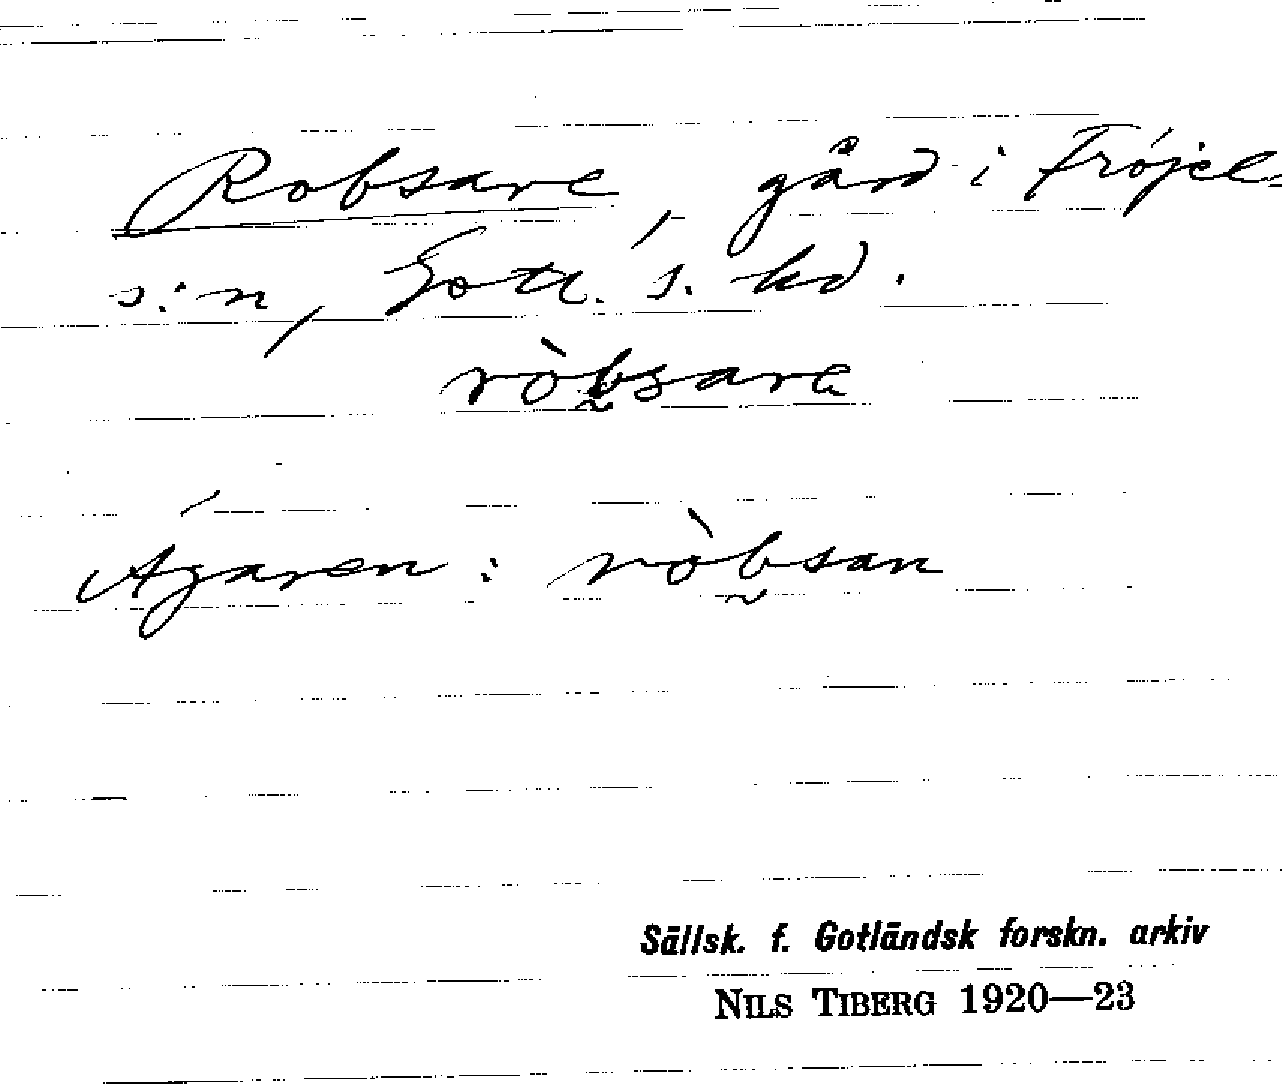 Robsare, gård i Fröjel
s:n, Gotl. s. hd.
ròb̰sara
Ägaren: ròb̰san
Sällsk. f. Gotländsk forskn. arkiv
NILS TIBERG 1920—23